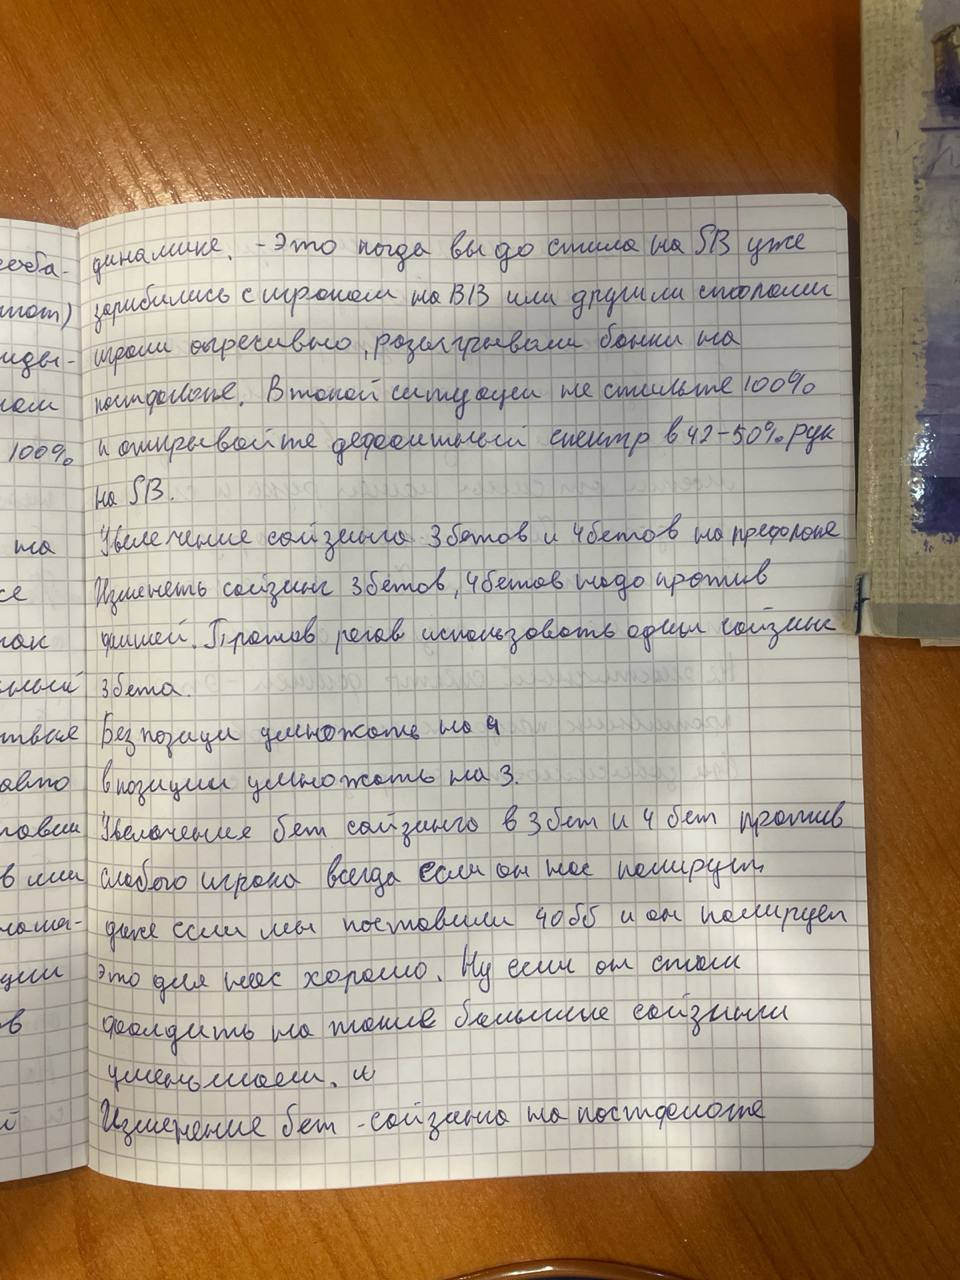 динамике. - Это когда вы до стила на SB уже
зарубились с игроком на BB или другими столами
играли агресивно, разыгрывали банки на
постфлопе. В такой ситуации не стильте 100%
и открывайте дефолтный спектр в 42-50% рук
на SB.
Увеличение сайзинга 3бетов и 4бетов на префлопе
Изменять сайзинг 3бетов, 4бетов надо против
фишей. Против регов использовать один сайзинг
3бета.
Без позиции умножать на 4
в позиции умножать на 3.
Увеличение бет сайзинга в 3бет и 4бет против
слабого игрока всегда если он нас колирует,
даже если мы поставили 40бб и он колирует
это для нас хорошо. Ну если он стал
фолдить на такие большие сайзинги
уменьшаем. и
Изменение бет-сайзинга на постфлопе
100%
на